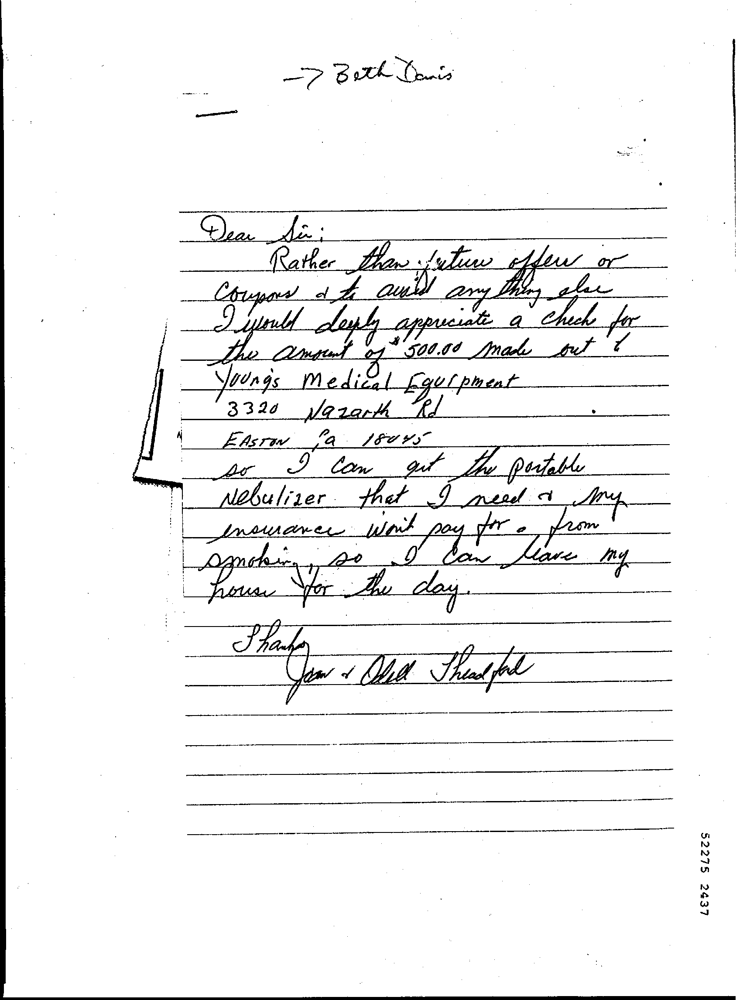 → Beth Davis
Dear Sir:
Rather than future offers or
Coupons & to avoid any thing else
I would deeply appreciate a check for
the amount of $500.00 made out to
Young's Medical Equipment
3320 Nazarth Rd
EASTON Pa 18045
so I can get the portable
Nebulizer that I need & my
insurance won't pay for. from
smoking, so I can leave my
house for the day.
Thanks
& Odell Threadford
52275 2437